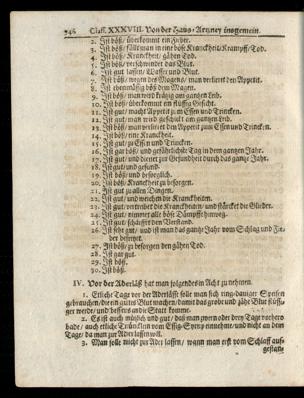 746 Class. XXXVIII. Von der Haus-Artzney insgemein.
2. Ist böß / überkommt ein Fieber.
3. Ist böß / fällt man in eine böse Kranckheit / Krampff / Tod.
4. Ist böß / Kranckheit / gähen Tod.
5. Ist böß / verschwindet das Blut.
6. Ist gut lassen / Wasser und Blut.
7. Ist böß / wegen des Magens / man verlieret den Appetit.
8. Ist ebenmäßig böß dem Magen.
9. Ist böß / man wird krätzig am gantzen Leib.
10. Ist böß / überkommt ein flüssig Gesicht.
11. Ist gut / macht Appetit zum Essen und Trincken.
12. Ist gut / man wird gestärckt am gantzen Leib.
13. Ist böß / man verlieret den Appetit zum Essen und Trincken.
14. Ist böß / eine Kranckheit.
15. Ist gut / zu Essen und Trincken.
16. Ist gar böß / und gefährlichste Tag in dem gantzen Jahr.
17. Ist gut / und dienet zur Gesundheit durch das gantze Jahr.
18. Ist gut / und gesund.
19. Ist böß / und besorglich.
20. Ist böß / Kranckheit zu besorgen.
21. Ist gut zu allen Dingen.
22. Ist gut / und weichen die Kranckheiten.
23. Ist gut / vertreibet die Kranckheiten / und stärcket die Glieder.
24. Ist gut / nimmet alle böse Dämpffe hinweg.
25. Ist gut / schärfft den Verstand.
26. Ist sehr gut / und ist man das gantze Jahr vom Schlag und Fie-
ber befreyet.
27. Ist böß / zu besorgen den gähen Tod.
28. Ist gar gut.
29. Ist böß.
30. Ist böß.
IV. Vor der Aderläß hat man folgendes in Acht zu nehmen.
1. Etliche Tage vor der Aderlässe solle man sich ring-däuiger Speisen
gebrauchen / die ein gutes Blut machen / damit das grobe und zähe Blut flüssi-
ger werde / und besseres an die Statt komme.
2. Es ist auch nützlich und gut / daß man zween oder drey Tage vorhero
bade / auch etliche Trüncklein vom Essig-Syrup einnehme / und nicht an dem
Tage / da man zur Ader lassen will.
3. Man solle nicht zur Ader lassen / wann man erst vom Schlaff auf-
gestan-